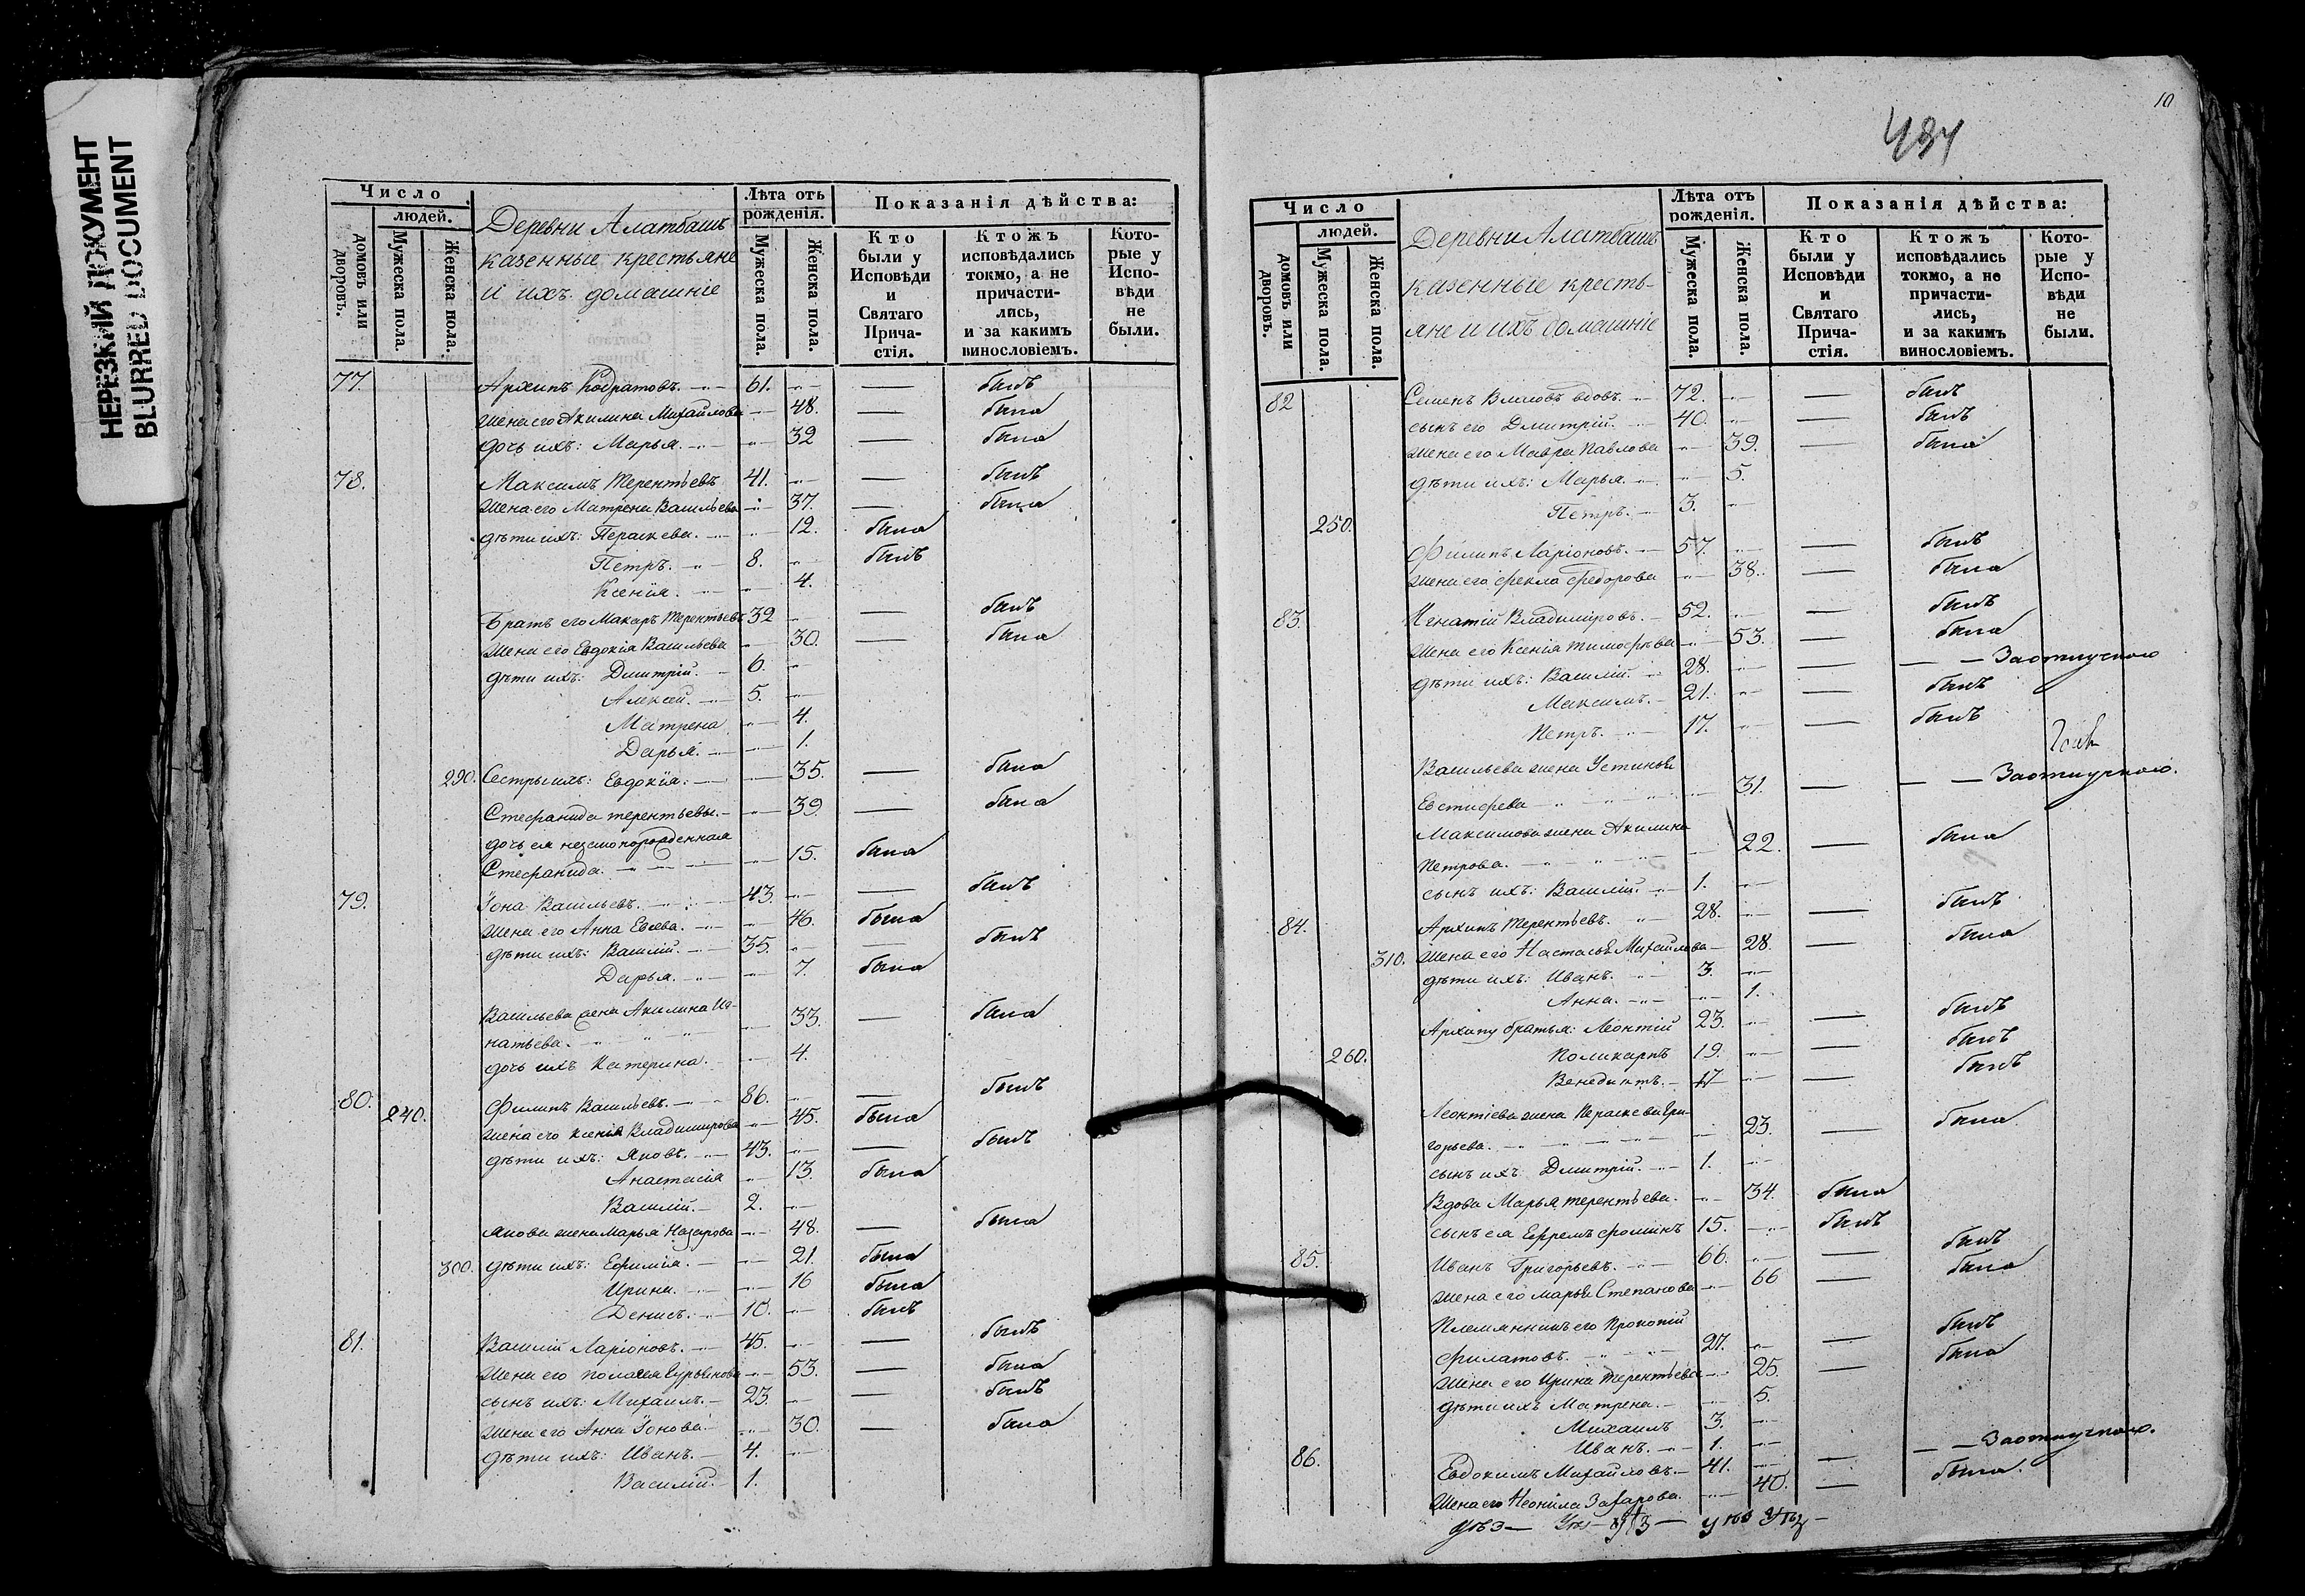 НЕРЕЗКИЙ ДОКУМЕНТ
BLURRED DOCUMENT
Число
людей.
домовъ или дворовъ.
Мужеска пола.
Женска пола.
Деревни Алатбашъ
казенные крестьяне
и ихъ домашніе
Лѣта отъ рожденія.
Мужеска пола.
Женска пола.
Показанія дѣйства:
Кто были у Исповѣди и Святаго Прича-стія.
Ктожъ исповѣдались токмо, а не причасти-лись, и за какимъ винословіемъ.
Кото-рые у Испо-вѣди не были.
77. Архипъ Кодратовъ. 61. — былъ
жена его Акилина Михайлова 48. — была
дочь ихъ: Марья. 32 — была
78. Максимъ Терентьевъ 41. — былъ
жена его Матрена Васильева 37. — была
дѣти ихъ: Пераскева. 12. была
Петръ. 8. былъ
Ксенія. 4.
Братъ его Макаръ Терентьевъ 32 — былъ
жена его Евдокія Васильева 30. — была
дѣти ихъ: Дмитрій. 6.
Алексѣй. 5.
Матрена 4.
Дарья. 1.
290. Сестры ихъ: Евдокія. 35. — была
Стефанида терентьевы. 39. — была
дочь ея незаконорожденная
Стефанида. 15. была
79. Іона Васильевъ. 43. — былъ
жена его Анна Евсева. 46. была
дѣти ихъ: Василій. 35. — былъ
Дарья. 7. была
Васильева жена Акилина Иг-
натьева. 33. — была
дочь ихъ Катерина. 4.
80. Филипъ Васильевъ. 86. — былъ
240. жена его Ксенія Владимирова 45. была
дѣти ихъ: Яковъ. 43. — былъ
Анастасія 13. была
Василій. 2.
Якова жена Марья Назарова 48. — была
300. дѣти ихъ: Ефимія. 21. была
Ирина. 16 была
Денисъ. 10. былъ
81. Василій Ларіоновъ. 45. — былъ
жена его Полагея Гурьянова 53. — была
сынъ ихъ: Михаилъ. 23. — былъ
жена его Анна Іонова 30. — была
дѣти ихъ: Иванъ. 4.
Василій. 1.
10
434
Число
людей.
домовъ или дворовъ.
Мужеска пола.
Женска пола.
Деревни Алатбашъ
казенные кресть-
яне и ихъ домашніе
Лѣта отъ рожденія.
Мужеска пола.
Женска пола.
Показанія дѣйства:
Кто были у Исповѣди и Святаго Прича-стія.
Ктожъ исповѣдались токмо, а не причасти-лись, и за какимъ винословіемъ.
Кото-рые у Испо-вѣди не были.
82 Семенъ вдовъ. 72. — былъ
сынъ его Дмитрій. 40. — былъ
жена его Мавра Павлова 39. — была
дѣти ихъ: Марья. 5.
250. Петръ. 3.
Филипъ Ларіоновъ. 57. — былъ
жена его Фекла Федорова 38. — была
83. Игнатій Владиміровъ. 52. — былъ
жена его Ксенія Тимофѣева 53. — была
дѣти ихъ: Василій. 28. — — — За отлучкою
Максимъ. 21. — былъ
Петръ. 17. — былъ
Васильева жена Устинья
Евстифева 31. — — — За отлучкою.
Максимова жена Акилина
Петрова. 22. — была
сынъ ихъ: Василій. 1.
84. Архипъ Терентьевъ. 28. — былъ
310. жена его Настасья Михайлова 28. — была
дѣти ихъ: Иванъ. 3.
Анна. 1.
Архипу братья: Леонтій 23. — былъ
260. Поликарпъ 19. — былъ
Венедиктъ. 17 — былъ
Леонтіева жена Пераскева Гри-
горьева. 23. — была
сынъ ихъ Дмитрій. 1.
Вдова Марья терентьева. 34. была
сынъ ея Ефремъ Фоминъ 15. былъ
85. Иванъ Григорьевъ. 66. — былъ
жена его Марья Степанова 66 — была
Племянникъ его Прокопій
Филатовъ. 27. — былъ
жена его Ирина Терентьева 25. — была
дѣти ихъ Матрена. 5.
Михаилъ 3.
Иванъ. 1.
86. Евдокимъ Михайловъ. 41. — — — За отлучкою.
жена его Неонила Захарова. 40. — была.